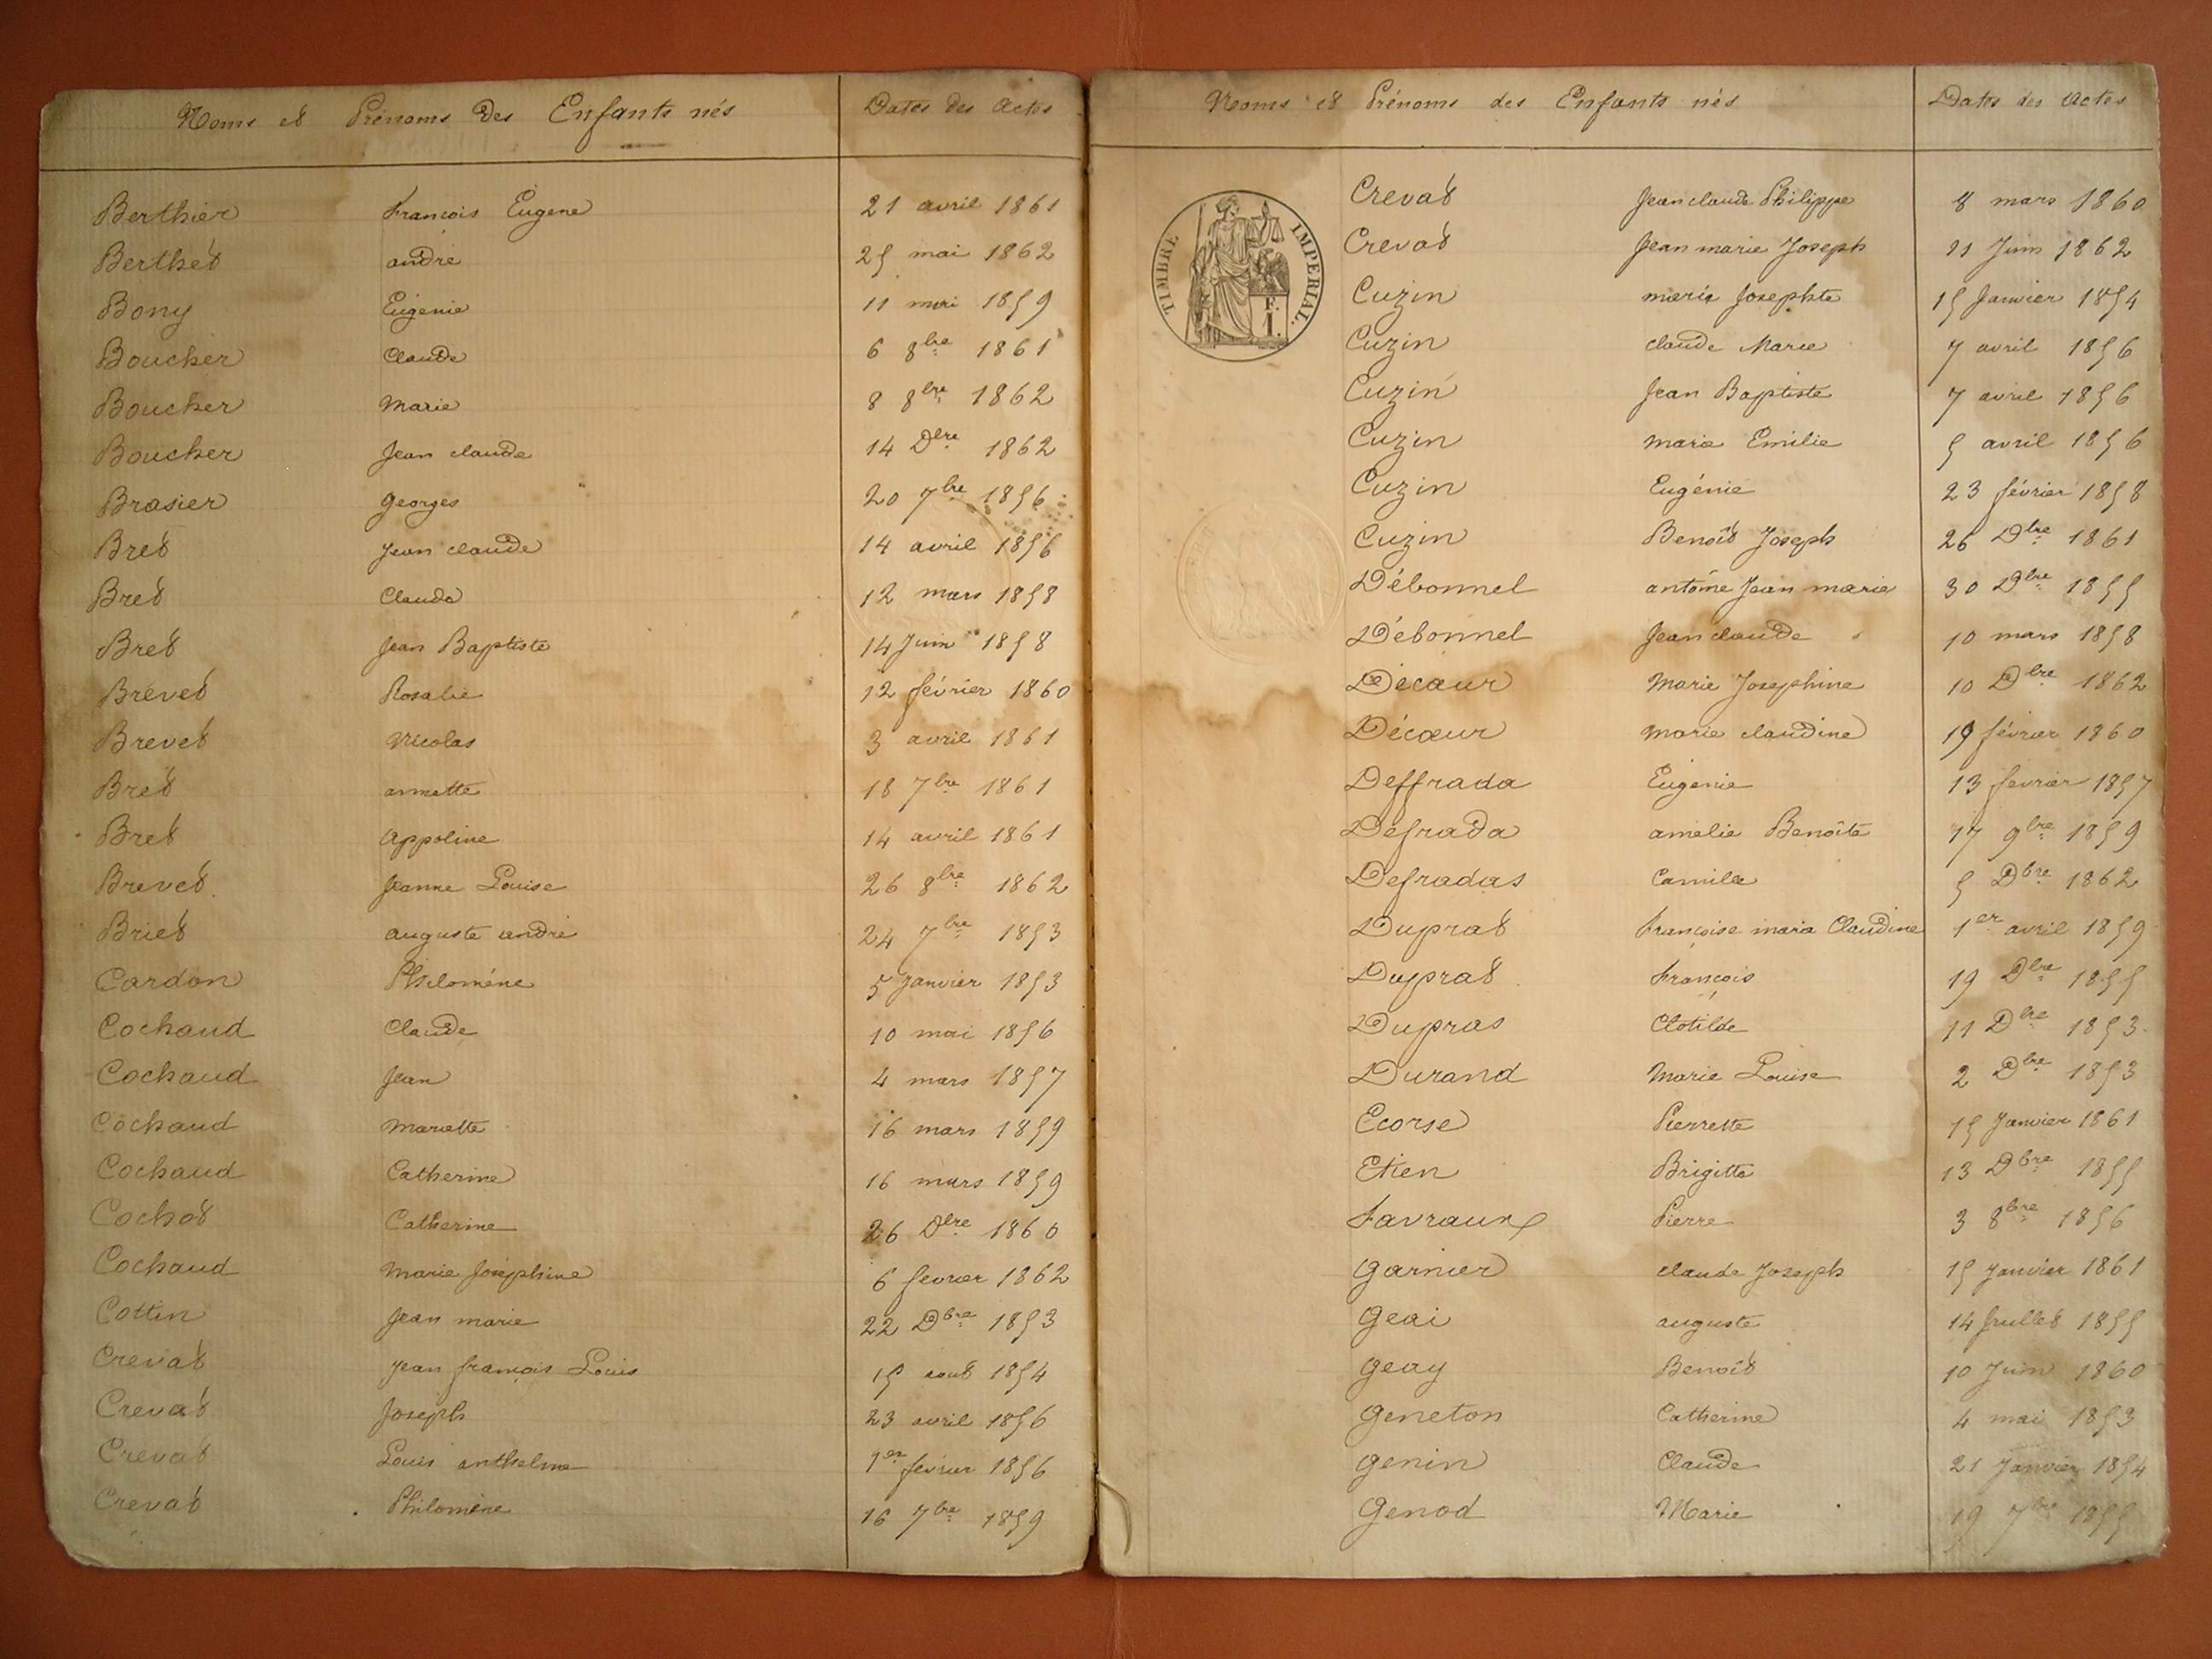 Noms et Prénoms des Enfants nés Dates des Actes
Berthier François Eugene 21 avril 1861
Berthet andré 25 mai 1862
Bony Eugénie 11 mai 1859
Boucher Claude 6 8bre 1861
Boucher Marie 8 8bre 1862
Boucher Jean claude 14 Dbre 1862
Brasier Georges 20 7bre 1856
Bret Jean claude 14 avril 1856
Bret Claude 12 mars 1858
Bret Jean Baptiste 14 Juin 1858
Brevet Rosalie 12 février 1860
Brevet Nicolas 3 avril 1861
Bret annette 18 7bre 1861
Bret appoline 14 avril 1861
Brevet Jeanne Louise 26 8bre 1862
Briet auguste andré 24 7bre 1853
Cardon Philomène 5 Janvier 1853
Cochaud Claude 10 mai 1856
Cochaud Jean 4 mars 1857
Cochaud Mariette 16 mars 1859
Cochaud Catherine 16 mars 1859
Cochot Catherine 26 Dbre 1860
Cochaud Marie Joséphine 6 fevrier 1862
Cottin Jean marie 22 Dbre 1853
Crevat Jean françois Louis 15 aout 1854
Crevat Joseph 23 avril 1856
Crevat Louis anthelme 1er fevrier 1856
Crevat Philomène 16 7bre 1859
Noms et Prénoms des Enfants nés Dates des Actes
TIMBRE IMPERIAL.
F.
1.
Crevat Jean claude Philippe 8 mars 1860
Crevat Jean marie Joseph 11 Juin 1862
Cuzin marie Josephte 15 Janvier 1854
Cuzin claude Marie 7 avril 1856
Cuzin Jean Baptiste 7 avril 1856
Cuzin marie Emilie 5 avril 1856
Cuzin Eugénie 23 février 1858
Cuzin Benoît Joseph 26 Dbre 1861
Débonnel antoine Jean marie 30 9bre 1855
Débonnel Jean claude 10 mars 1858
Décœur Marie Josephine 10 Dbre 1862
Décœur marie claudine 19 février 1860
Deffrada Eugénie 13 fevrier 1857
Defrada amélie Benoîte 17 9bre 1859
Defradas Camille 5 Dbre 1862
Duprat Françoise marie Claudine 1er avril 1859
Duprat François 19 Dbre 1855
Dupras Clotilde 11 Dbre 1853
Durand Marie Louise 2 Dbre 1853
Ecorse Pierrette 15 Janvier 1861
Etien Brigitte 13 Dbre 1855
Favraux Pierre 3 8bre 1856
Garnier claude Joseph 15 Janvier 1861
Geai auguste 14 Juillet 1855
Geay Benoît 10 Juin 1860
Geneton Catherine 4 mai 1853
Genin Claude 21 Janvier 1854
Genod Marie 19 7bre 1855